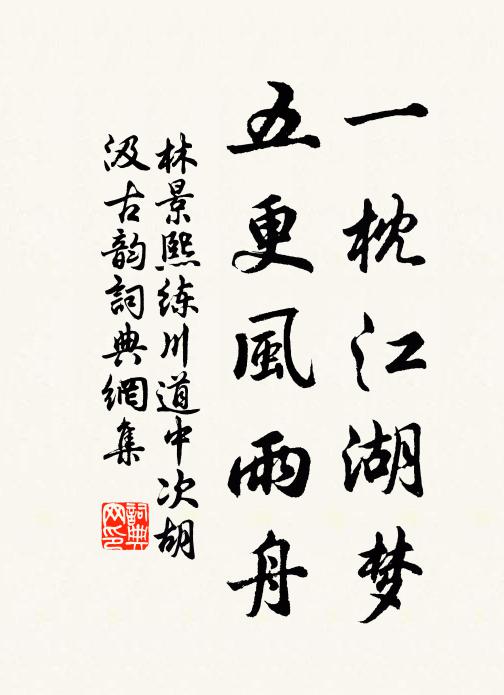 一枕江湖梦
五更風雨舟
林景熙练川道中次胡
汲古韵詞典網集
詞典
网印